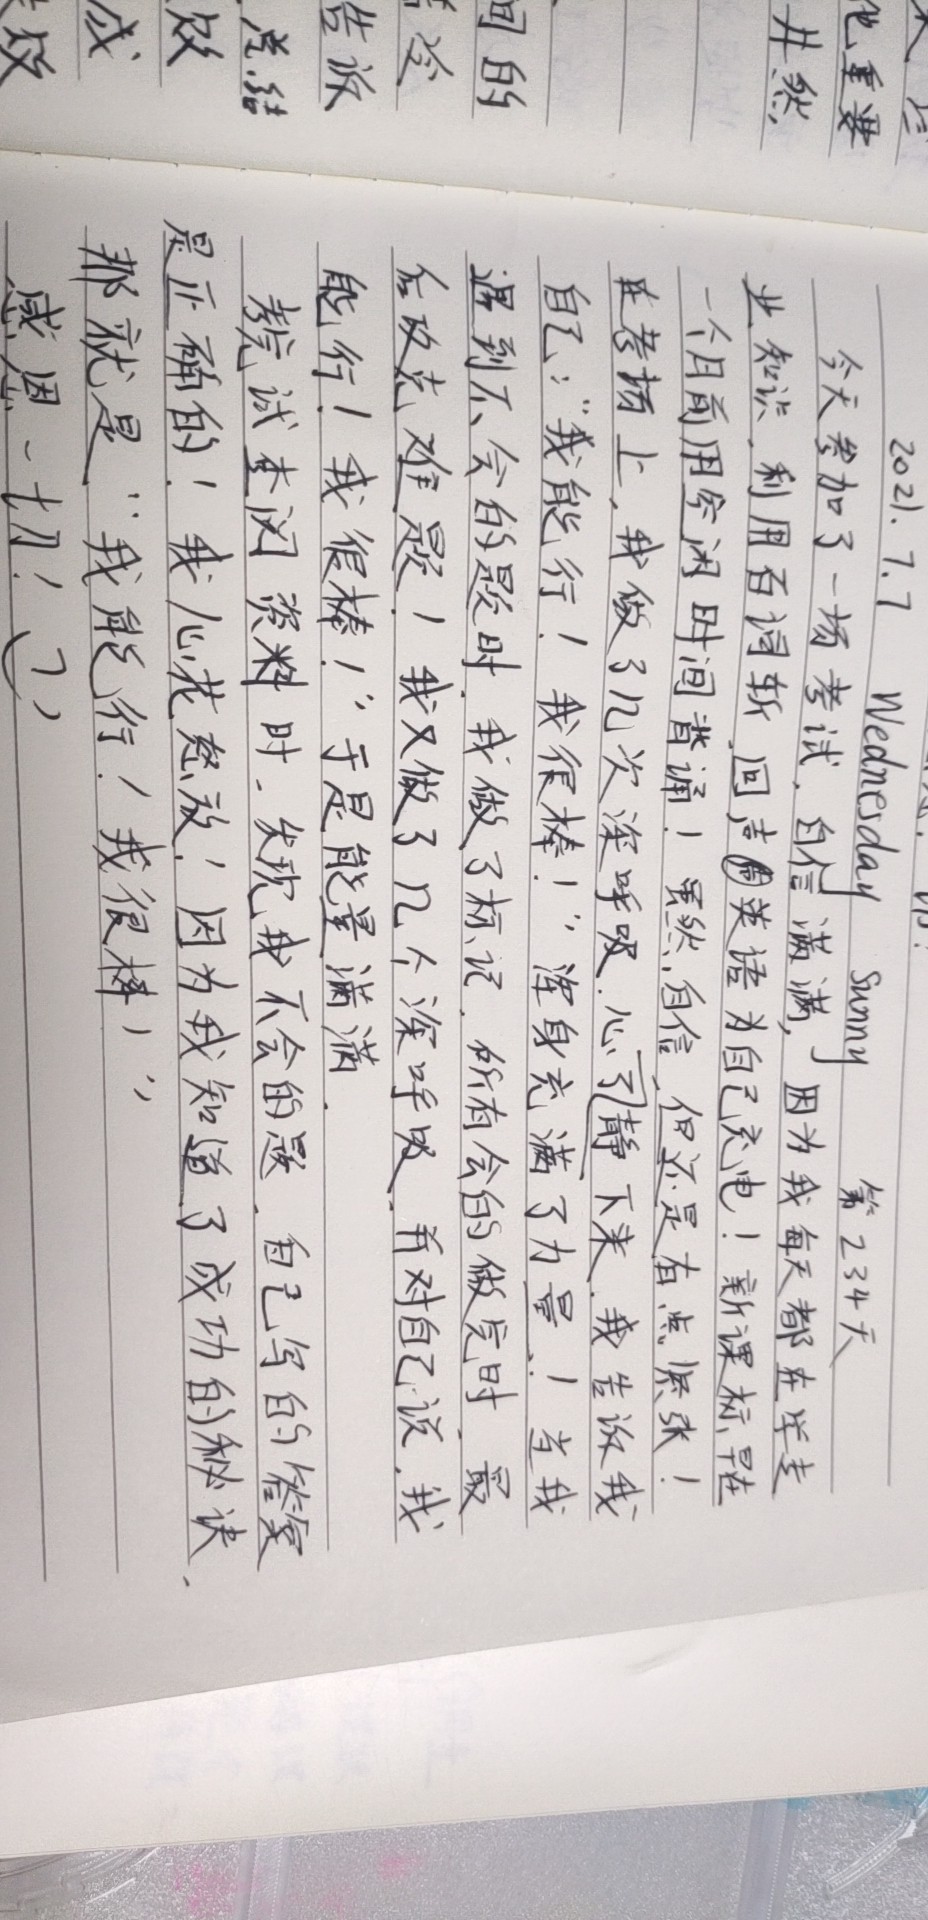 他重要
井然
问的
告诉
总结
效
成
效
2021.7.7 Wednesday Sunny 第234天
今天参加了一场考试，自信满满，因为我每天都在学专
业知识，利用百词斩，回声英语为自己充电！新课标早在
一个月前用空闲时间背诵！虽然自信，但还是有点紧张！
在考场上，我做了几次深呼吸，心静下来，我告诉我
自己：“我能行！我很棒！”浑身充满了力量！当我
遇到不会的题时，我做了标记，所有会的做完时，最
后攻克难题！我又做了几个深呼吸，并对自己说，我
能行！我很棒！”于是能量满满.
考完试查阅资料时，发现我不会的题，自己写的答案
是正确的！我心花怒放！因为我知道了成功的秘诀.
那就是“我能行！我很棒！”
感恩一切！